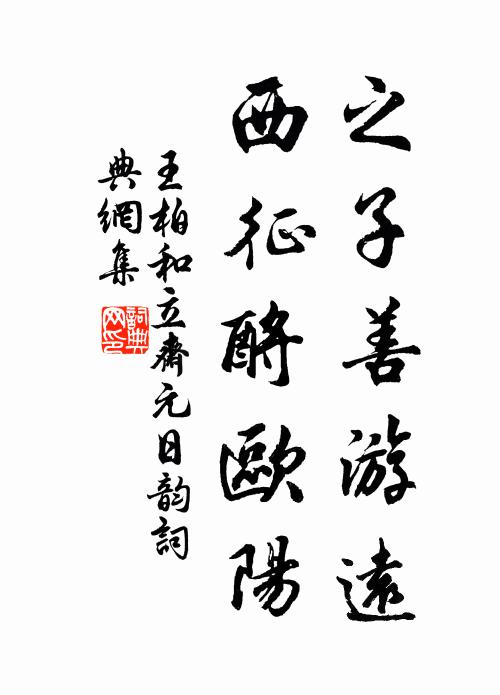 之子善游遠
西征酹歐陽
王柏和立齋元日韵詞
典網集
詞典
网印